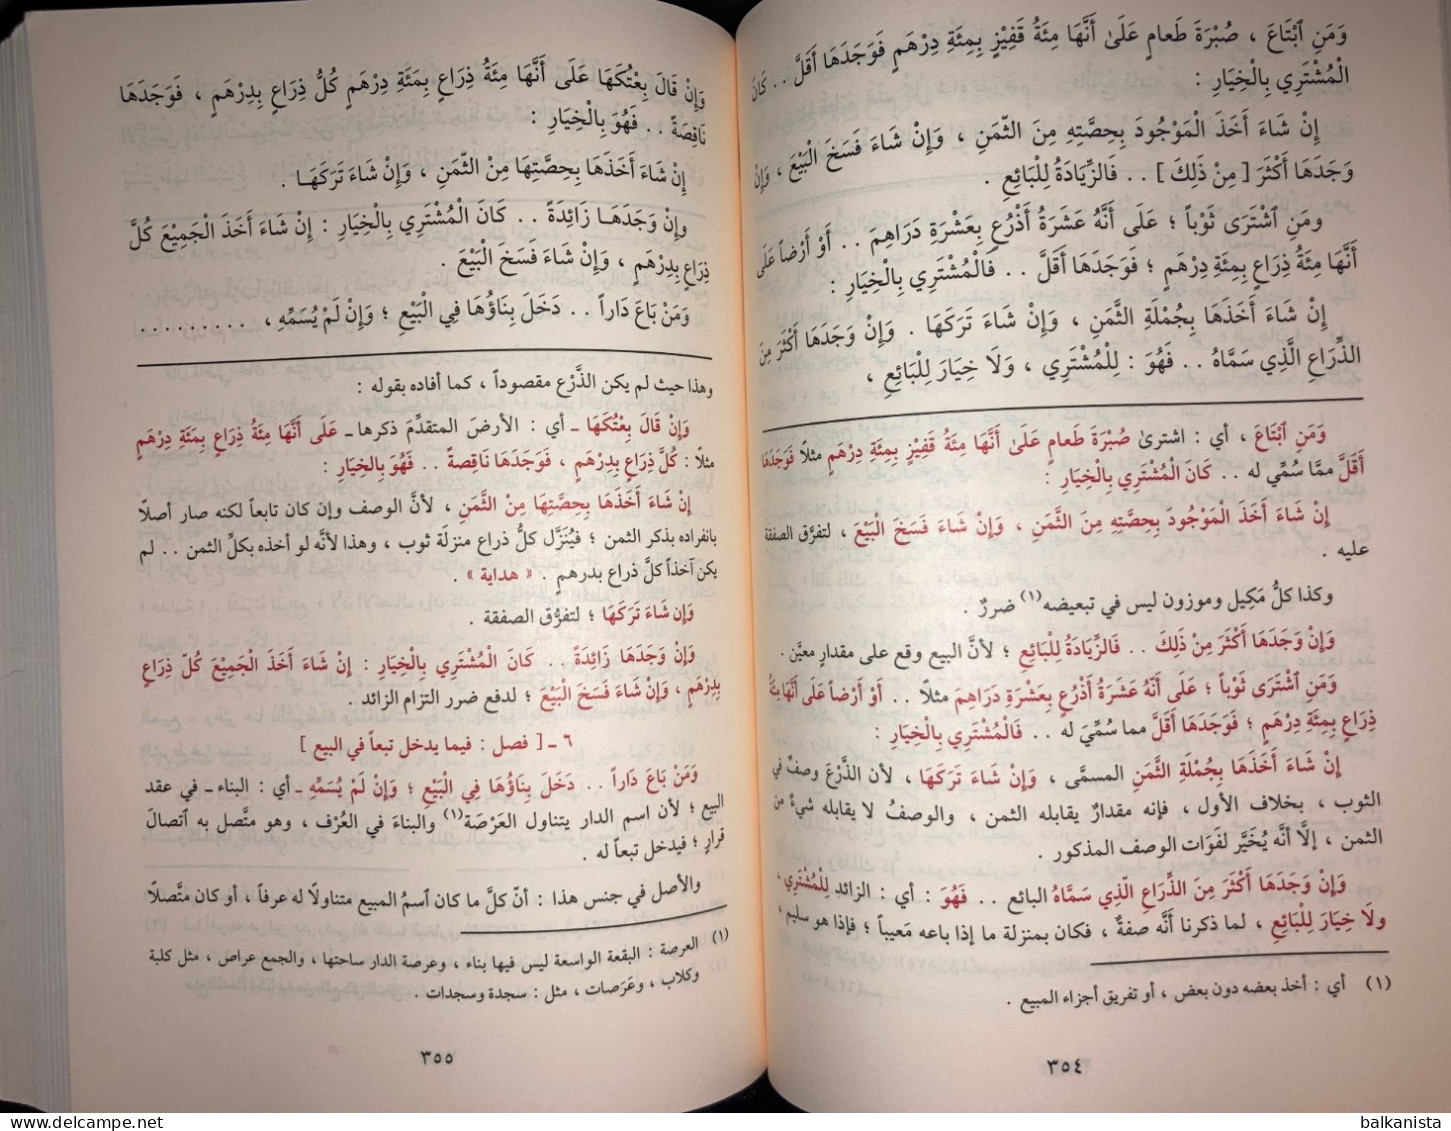 وَمَنِ ٱبْتَاعَ ، صُبْرَةَ طَعامٍ عَلَىٰ أَنَّهَا مِئَةُ قَفِيْزٍ بِمِئَةِ دِرْهَمٍ فَوَجَدَهَا أَقَلَّ . . كَانَ
الْمُشْتَرِي بِالْخِيَارِ :
إِنْ شَاءَ أَخَذَ الْمَوْجُودَ بِحِصَّتِهِ مِنَ الثَّمَنِ ، وَإِنْ شَاءَ فَسَخَ الْبَيْعَ ، وَإِنْ
وَجَدَهَا أَكْثَرَ [ مِنْ ذَلِكَ ] . . فَالزِّيَادَةُ لِلْبَائِعِ .
وَمَنِ اشْتَرَى ثَوْباً ؛ عَلَى أَنَّهُ عَشَرَةُ أَذْرُعٍ بِعَشْرَةِ دَرَاهِمَ . . أَوْ أَرْضاً عَلَى
أَنَّهَا مِئَةُ ذِرَاعٍ بِمِئَةِ دِرْهَمٍ ؛ فَوَجَدَهَا أَقَلَّ . . فَالْمُشْتَرِي بِالْخِيَارِ :
إِنْ شَاءَ أَخَذَهَا بِجُمْلَةِ الثَّمَنِ ، وَإِنْ شَاءَ تَرَكَهَا . وَإِنْ وَجَدَهَا أَكْثَرَ مِنَ
الذِّرَاعِ الَّذِي سَمَّاهُ . . فَهُوَ : لِلْمُشْتَرِي ، وَلَا خِيَارَ لِلْبَائِعِ ،
وَمَنِ ٱبْتَاعَ ، أي : اشترىٰ صُبْرَةَ طَعامٍ عَلَىٰ أَنَّهَا مِئَةُ قَفِيْزٍ بِمِئَةِ دِرْهَمٍ مثلاً فَوَجَدَهَا
أَقَلَّ ممَّا سُمِّي له . . كَانَ الْمُشْتَرِي بِالْخِيَارِ :
إِنْ شَاءَ أَخَذَ الْمَوْجُودَ بِحِصَّتِهِ مِنَ الثَّمَنِ ، وَإِنْ شَاءَ فَسَخَ الْبَيْعَ ، لتفرُّق الصفقة
عليه .
وكذا كلُّ مَكِيل وموزون ليس في تبعيضه(١) ضررٌ .
وَإِنْ وَجَدَهَا أَكْثَرَ مِنْ ذَلِكَ . . فَالزِّيَادَةُ لِلْبَائِعِ ؛ لأنَّ البيع وقع على مقدارٍ معيَّن .
وَمَنِ اشْتَرَى ثَوْباً ؛ عَلَى أَنَّهُ عَشَرَةُ أَذْرُعٍ بِعَشْرَةِ دَرَاهِمَ مثلاً . . أَوْ أَرْضاً عَلَى أَنَّهَا مِئَةُ
ذِرَاعٍ بِمِئَةِ دِرْهَمٍ ؛ فَوَجَدَهَا أَقَلَّ مما سُمِّيَ له . . فَالْمُشْتَرِي بِالْخِيَارِ :
إِنْ شَاءَ أَخَذَهَا بِجُمْلَةِ الثَّمَنِ المسمَّى ، وَإِنْ شَاءَ تَرَكَهَا ، لأن الذَّرْعَ وصفٌ في
الثوب ، بخلاف الأول ، فإنه مقدارٌ يقابله الثمن ، والوصفُ لا يقابله شيءٌ من
الثمن ، إلَّا أنَّه يُخَيَّر لفَوَات الوصف المذكور .
وَإِنْ وَجَدَهَا أَكْثَرَ مِنَ الذِّرَاعِ الَّذِي سَمَّاهُ البائع . . فَهُوَ : أي : الزائد لِلْمُشْتَرِي ،
ولَا خِيَارَ لِلْبَائِعِ ، لما ذكرنا أنَّه صفةٌ ، فكان بمنزلة ما إذا باعه مَعيباً ؛ فإذا هو سليم ،
(١) أي : أخذ بعضه دون بعض ، أو تفريق أجزاء المبيع .
٣٥٤
وَإِنْ قَالَ بِعْتُكَهَا عَلَى أَنَّهَا مِئَةُ ذِرَاعٍ بِمَئَةِ دِرْهَمٍ كُلُّ ذِرَاعٍ بِدِرْهَمٍ ، فَوَجَدَهَا
نَاقِصَةً . . فَهُوَ بِالْخِيَارِ :
إِنْ شَاءَ أَخَذَهَا بِحِصَّتِهَا مِنْ الثَّمَنِ ، وَإِنْ شَاءَ تَرَكَهَا .
وإِنْ وَجَدَهَا زَائِدَةً . . كَانَ الْمُشْتَرِي بِالْخِيَارِ : إِنْ شَاءَ أَخَذَ الْجَمِيْعَ كُلَّ
ذِرَاعٍ بِدِرْهَمٍ ، وَإِنْ شَاءَ فَسَخَ الْبَيْعَ .
وَمَنْ بَاعَ دَاراً . . دَخَلَ بِنَاؤُهَا فِي الْبَيْعِ ؛ وَإِنْ لَمْ يُسَمِّهِ ، . . . . . . . . .
وهذا حيث لم يكن الذَّرْع مقصوداً ، كما أفاده بقوله :
وَإِنْ قَالَ بِعْتُكَهَا ـ أي : الأرضَ المتقدِّمَ ذكرها ـ عَلَى أَنَّهَا مِئَةُ ذِرَاعٍ بِمَئَةِ دِرْهَمٍ
مثلاً : كُلَّ ذِرَاعٍ بِدِرْهَمٍ ، فَوَجَدَهَا نَاقِصةً . . فَهُوَ بِالخِيَارِ :
إِنْ شَاءَ أَخَذَهَا بِحِصَّتِهَا مِنْ الثَّمَنِ ، لأنَّ الوصف وإن كان تابعاً لكنه صار أصلاً
بانفراده بذكر الثمن ؛ فيُنَزَّل كلُّ ذراع منزلَة ثوب ، وهذا لأنَّه لو أخذه بكلِّ الثمن . . لم
يكن آخذاً كلَّ ذراع بدرهم . « هداية » .
وَإِن شَاءَ تَرَكَهَا ؛ لتفرُّق الصفقة .
وَإِنْ وَجَدَهَا زَائِدَةً . . كَانَ الْمُشْتَرِي بِالْخِيَارِ : إِنْ شَاءَ أَخَذَ الْجَمِيْعَ كُلّ ذِرَاعٍ
بِدِرْهَمٍ ، وَإِنْ شَاءَ فَسَخَ الْبَيْعَ ؛ لدفع ضرر التزام الزائد .
٦ ـ [ فصل : فيما يدخل تبعاً في البيع ]
وَمَنْ بَاعَ دَاراً . . دَخَلَ بِنَاؤُهَا فِي الْبَيْعِ ؛ وَإِنْ لَمْ يُسَمِّهِ ـ أي : البناء ـ في عقد
البيع ؛ لأن اسم الدار يتناول العَرْصَة(١) والبناءَ في العُرْف ، وهو متَّصل به ٱتصالَ
قرارٍ ؛ فيدخل تبعاً له .
والأصل في جنس هذا : أنّ كلَّ ما كان ٱسمُ المبيع متناولًا له عرفاً ، أو كان متَّصلاً
(١) العرصة : البقعة الواسعة ليس فيها بناء ، وعرصة الدار ساحتها ، والجمع عراص ، مثل كلبة
وكلاب ، وعَرَصات ، مثل : سجدة وسجدات .
٣٥٥
balkanista